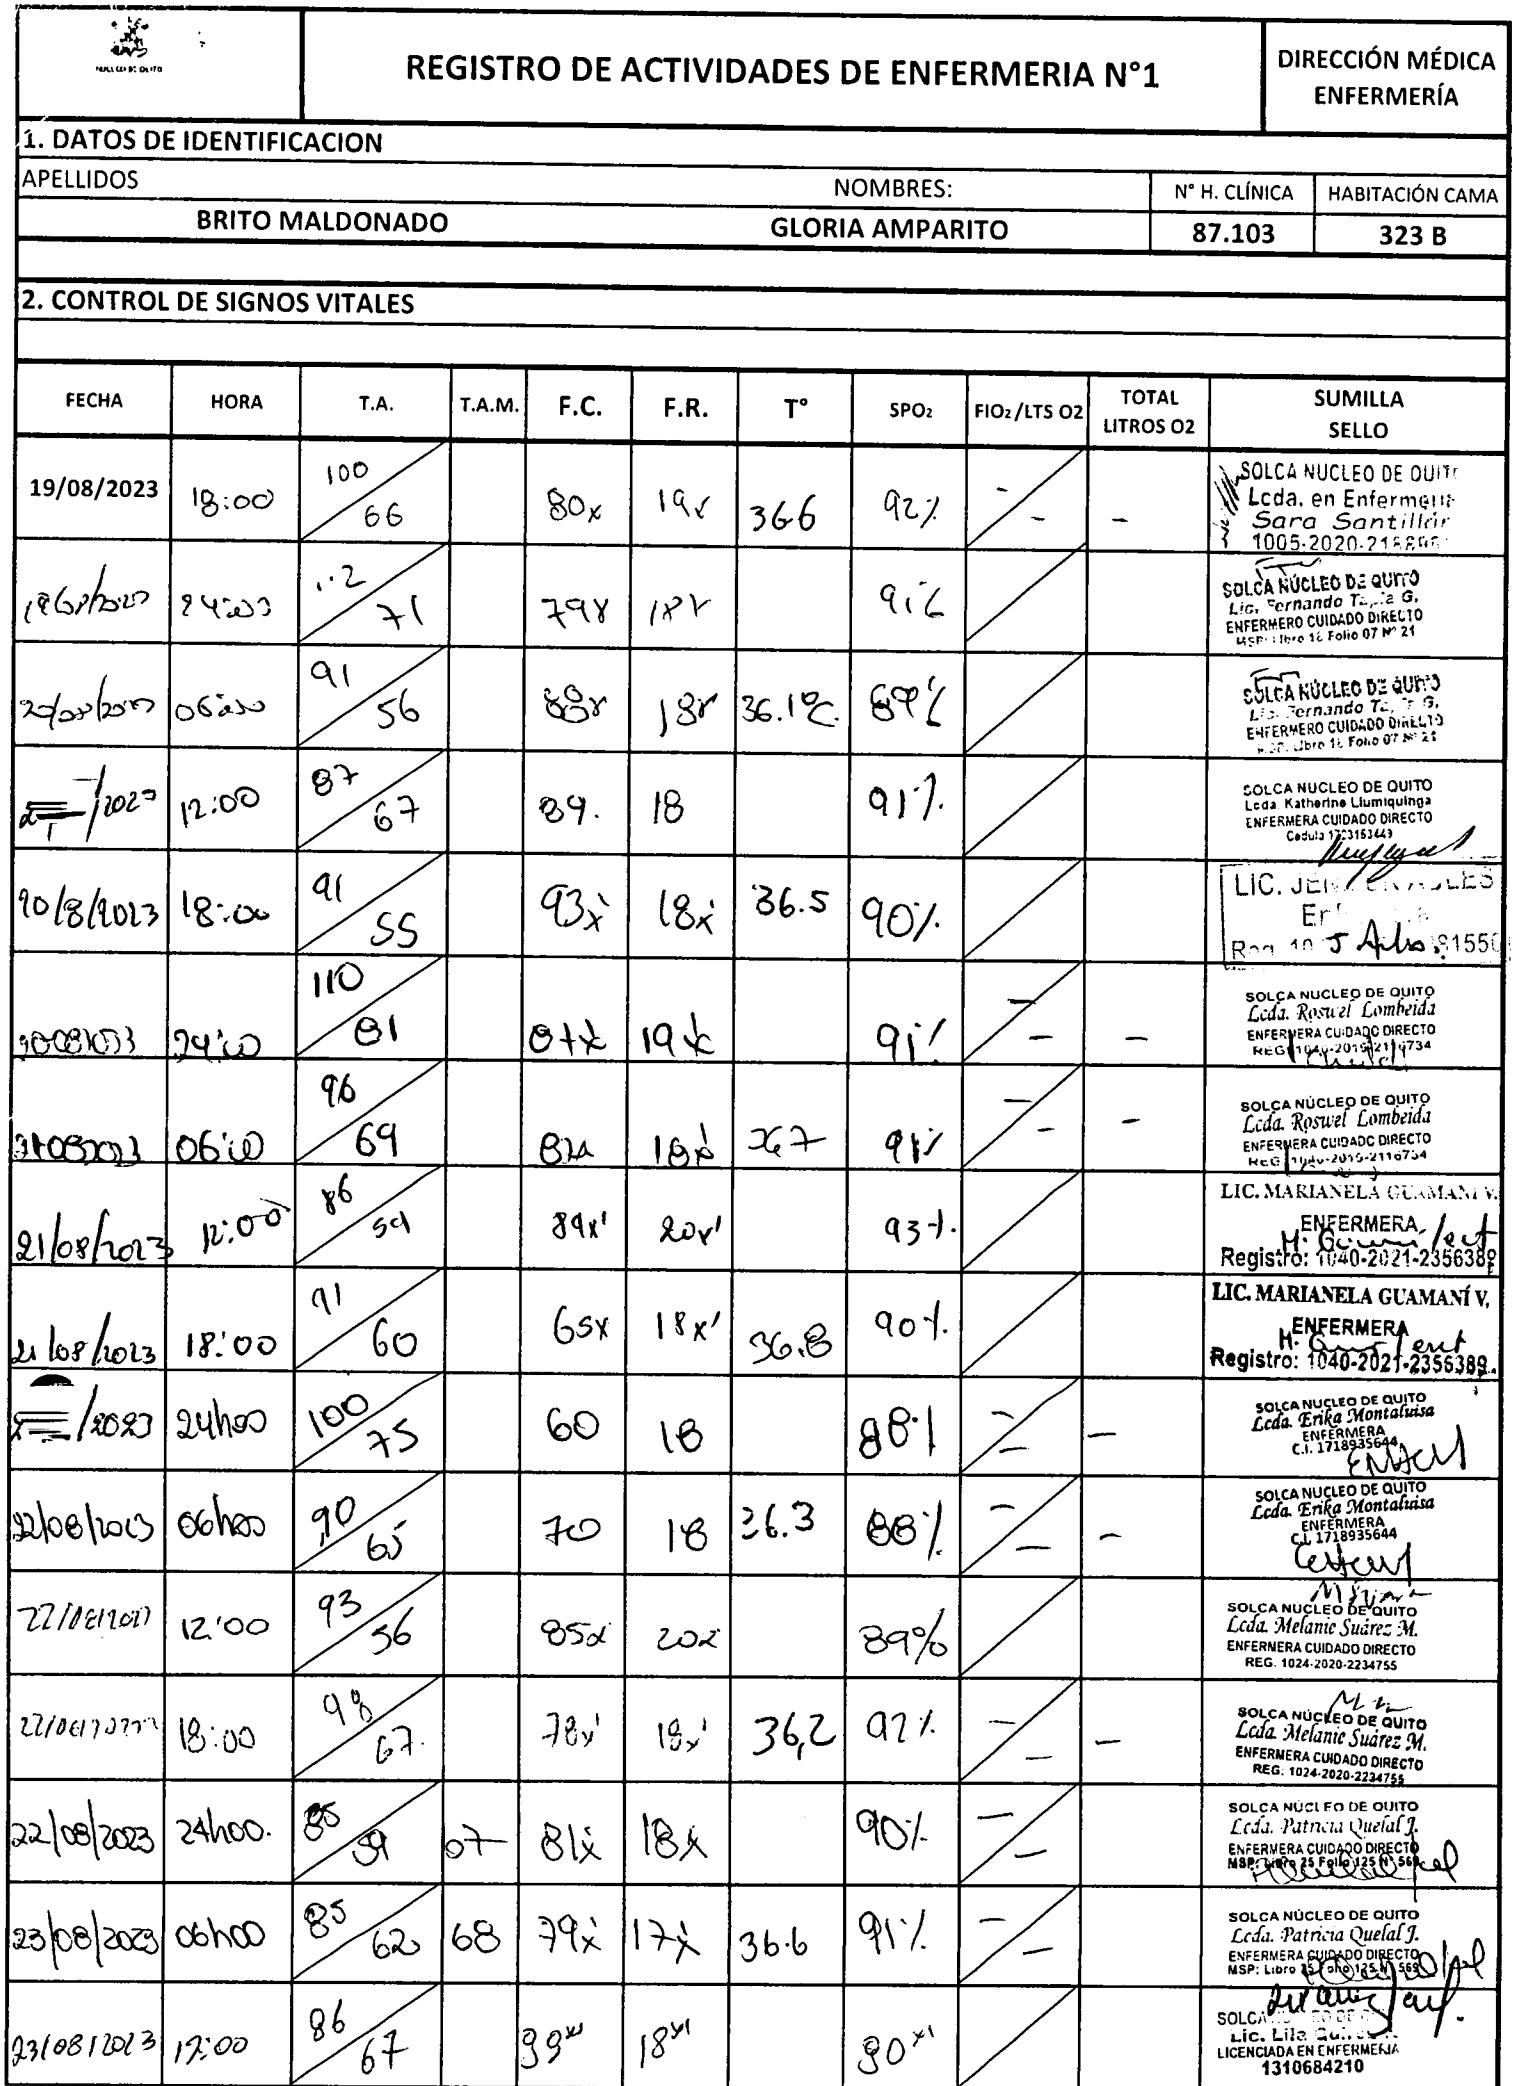 NUCLEO DE QUITO
REGISTRO DE ACTIVIDADES DE ENFERMERIA N°1
DIRECCIÓN MÉDICA
ENFERMERÍA
1. DATOS DE IDENTIFICACION
APELLIDOS NOMBRES: N° H. CLÍNICA HABITACIÓN CAMA
BRITO MALDONADO GLORIA AMPARITO 87.103 323 B
2. CONTROL DE SIGNOS VITALES
FECHA HORA T.A. T.A.M. F.C. F.R. T° SPO2 FIO2/LTS O2 TOTAL LITROS O2 SUMILLA SELLO
19/08/2023 18:00 100/66 80x 19x 36.6 92% - / - -
SOLCA NUCLEO DE QUITO
Lcda. en Enfermería
Sara Santillán
24:00 71 79x 18x
SOLCA NÚCLEO DE QUITO
Lic. Fernando
ENFERMERO CUIDADO DIRECTO
MSP: Libro 16 Folio 07 N° 21
06:00 91/56 88x 18x 36.1°C. 89%
SOLCA NÚCLEO DE QUITO
Lic. Fernando
ENFERMERO CUIDADO DIRECTO
Libro 16 Folio 07 N° 21
/2023 12:00 87/67 89. 18 91%
SOLCA NUCLEO DE QUITO
Lcda. Katherine Llumiquinga
ENFERMERA CUIDADO DIRECTO
Cedula 1723153443
20/8/2023 18:00 91/55 93x' 18x' 36.5 90%
LIC.
24:00 110/81 87x 19x 91% - / - -
SOLCA NUCLEO DE QUITO
Lcda. Roswel Lombeida
ENFERMERA CUIDADO DIRECTO
REG. 1040-2019-2116734
21082023 06:00 96/69 82x 18x' 36.7 91% - / - -
SOLCA NÚCLEO DE QUITO
Lcda. Roswel Lombeida
ENFERMERA CUIDADO DIRECTO
REG. 1040-2019-2116734
21/08/2023 12:00 86/59 89x' 20x' 93%.
LIC. MARIANELA GUAMANÍ V.
ENFERMERA
Registro: 1040-2021-2356389
21/08/2023 18:00 91/60 65x 18x' 36.8 90%.
LIC. MARIANELA GUAMANÍ V.
ENFERMERA
Registro: 1040-2021-2356389.
/2023 24h00 100/75 60 18 88% - / - -
SOLCA NUCLEO DE QUITO
Lcda. Erika Montaluisa
ENFERMERA
C.I. 1718935644
22/08/2023 06h00 90/65 70 18 36.3 88% - / - -
SOLCA NUCLEO DE QUITO
Lcda. Erika Montaluisa
ENFERMERA
C.I. 1718935644
12:00 93/56 85x 20x 89%
SOLCA NÚCLEO DE QUITO
Lcda. Melanie Suárez M.
ENFERMERA CUIDADO DIRECTO
REG. 1024-2020-2234755
18:00 98/67. 78x' 18x' 36,2 92% - / - -
SOLCA NÚCLEO DE QUITO
Lcda. Melanie Suárez M.
ENFERMERA CUIDADO DIRECTO
REG: 1024-2020-2234755
22/08/2023 24h00. 85/59 67 81x 18x 90% - / -
SOLCA NÚCLEO DE QUITO
Lcda. Patricia Quelal J.
ENFERMERA CUIDADO DIRECTO
MSP: Libro 25 Folio 125 N° 569
23/08/2023 06h00 85/62 68 79x 17x 36.6 91% - / -
SOLCA NÚCLEO DE QUITO
Lcda. Patricia Quelal J.
ENFERMERA CUIDADO DIRECTO
MSP: Libro 25 Folio 125 N° 569
23/08/2023 12:00 86/67 99x' 18x' 90x'
SOLCA
Lic. Lila
LICENCIADA EN ENFERMERÍA
1310684210